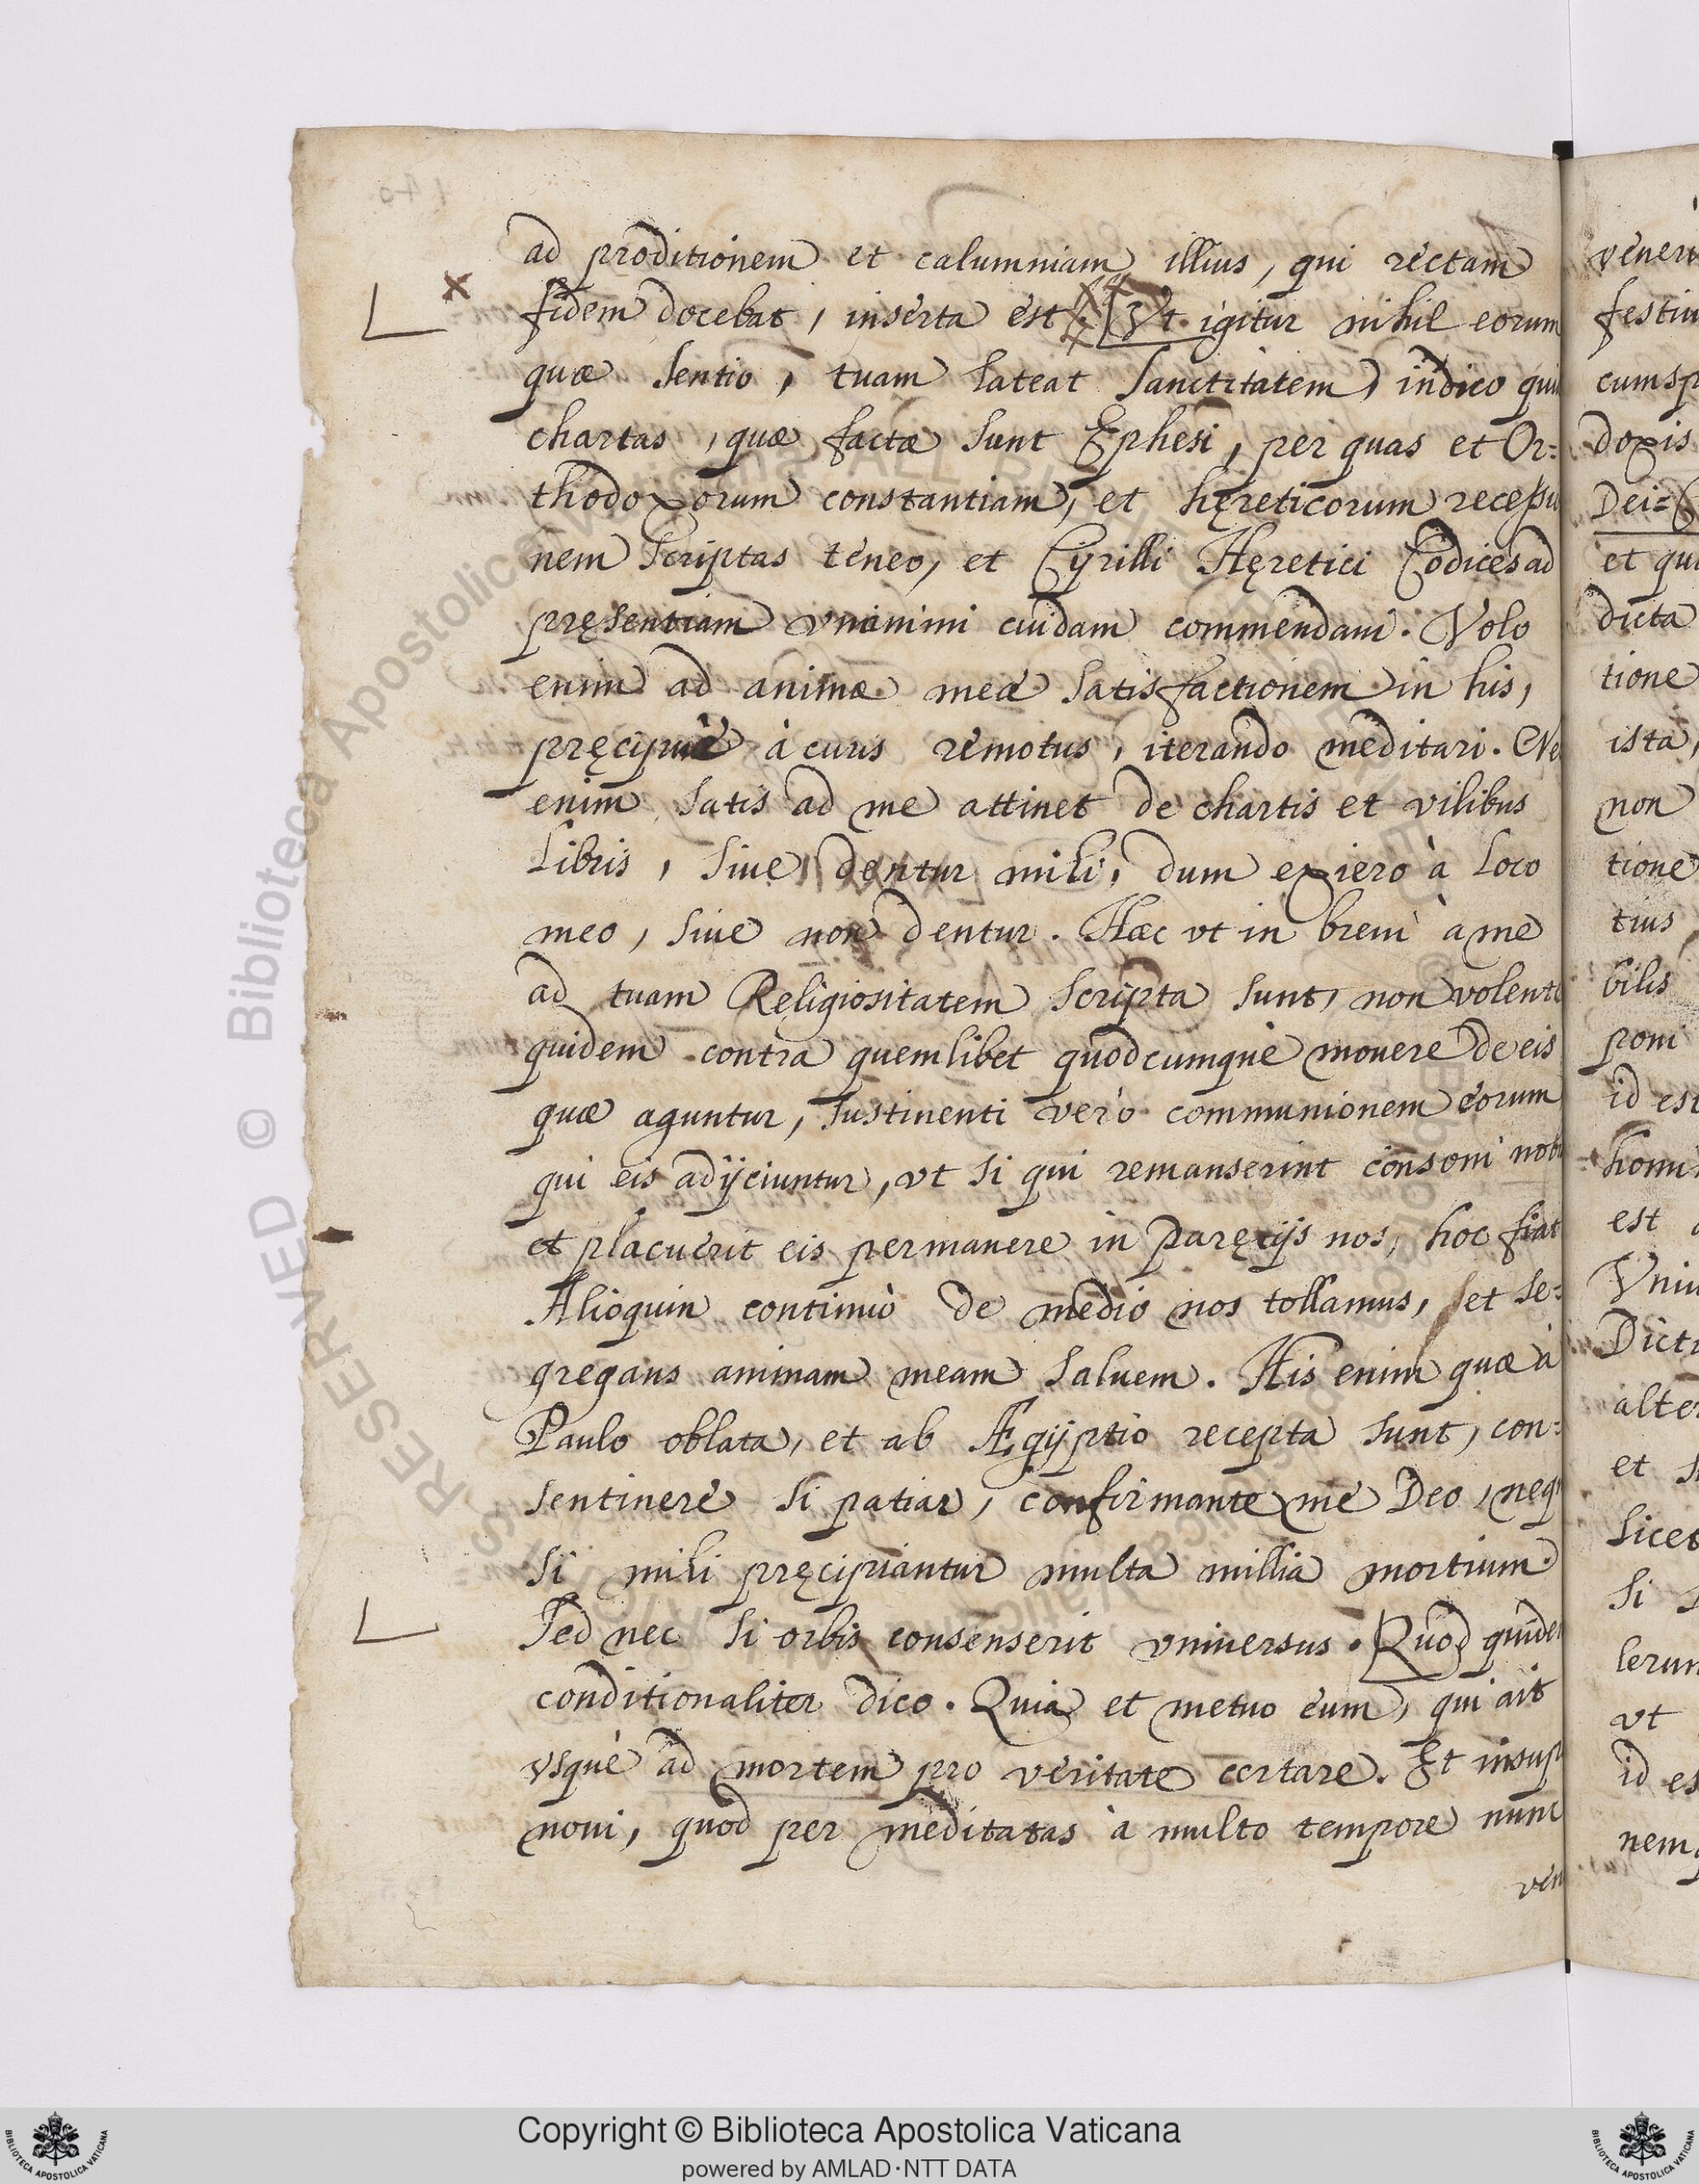 ad proditionem et calumniam illius, qui rectam
fidem docebat, inserta est. Vt igitur nihil eorum
quæ sentio, tuam lateat sanctitatem, indico
chartas, quæ factæ sunt Ephesi, per quas et Or=
thodoxorum constantiam, et hęreticorum
nem scriptas teneo, et Cyrilli Hęretici Codices ad
pręsentiam vnanimi cuidam commendaui. Volo
enim ad animæ meæ satisfactionem in his,
pręcipuè à curis remotus, iterando meditari. Ne
enim satis ad me attinet de chartis et vilibus
Libris, siue dentur mihi, dum exiero à loco
meo, siue non dentur. Hæc vt in breui à me
ad tuam Religiositatem scripta sunt, non volenti
quidem contra quemlibet quodcumque mouere de eis
quæ aguntur, sustinenti verò communionem eorum
qui eis adijciuntur, vt si qui remanserint consoni
et placuerit eis permanere in Paręcijs nos, hoc fiat
Alioquin continuò de medio nos tollamus, et se=
gregans animam meam saluem. His enim quæ à
Paulo oblata, et ab Ægyptio recepta sunt, con=
sentinere si patiar, confirmante me Deo, neq
si mihi pręcipiantur multa millia mortium.
Sed nec si orbis consenserit vniuersus. Quod
conditionaliter dico. Quia et metuo eum, qui ait
vsque ad mortem pro veritate certare. Et
noui, quod per meditatas à multo tempore nunc
ven
festiu
cumsp
doxis
Dei=
et qui
dicta
tione
ista,
non
tione
tius
bilis
poni
id est
homi
est
Vniu
Dict
alte
et
licet
si
lerun
vt
id es
nem
© Biblioteca Apostolica Vaticana
RESERVED
Copyright © Biblioteca Apostolica Vaticana
powered by AMLAD·NTT DATA
BIBLIOTECA APOSTOLICA VATICANA
BIBLIOTECA APOSTOLICA VATICANA